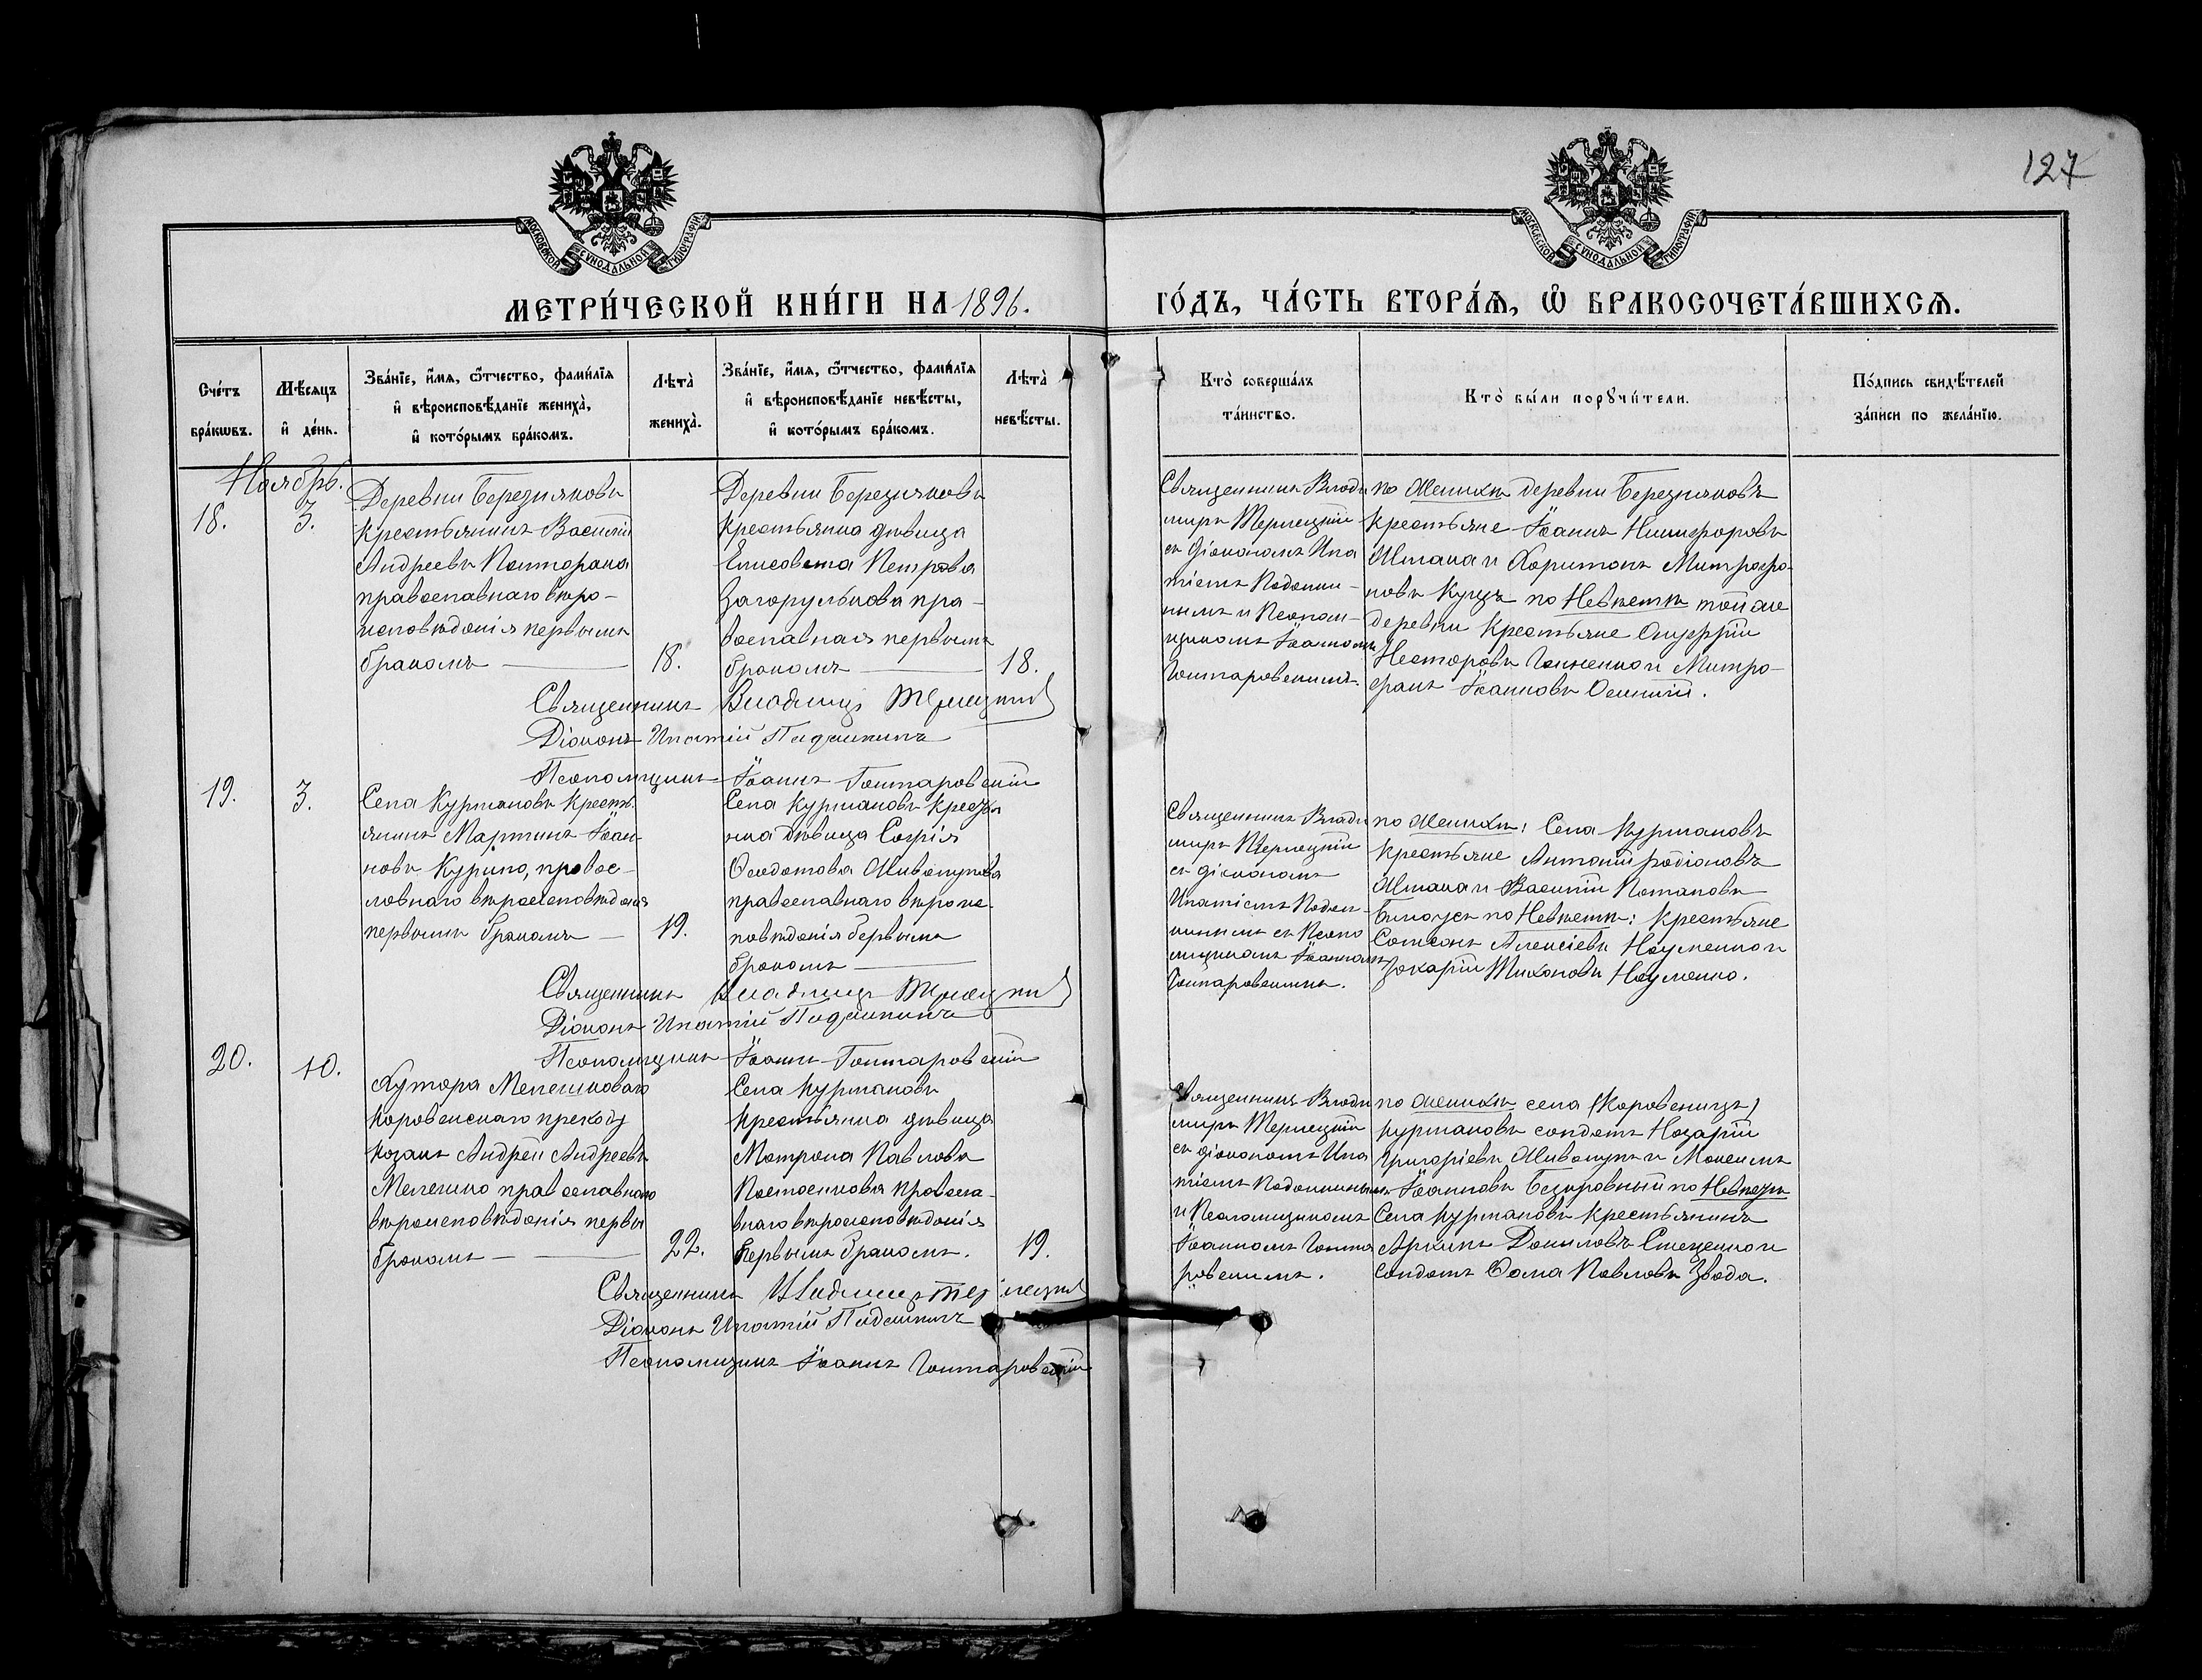 127
МОСКОВСКОЙ СѴНОДАЛЬНОЙ ТИПОГРАФІИ
МОСКОВСКОЙ СѴНОДАЛЬНОЙ ТИПОГРАФІИ
МЕТРИ́ЧЕСКОЙ КНИ́ГИ НА 1896. ГО́ДЪ, ЧА́СТЬ ВТОРА́Ѧ, Ѡ БРАКОСОЧЕТА́ВШИХСѦ.
Сче́тъ
бра́кѡвъ.
Мѣ́сяцъ
и҆ де́нь.
Зва́нїе, и҆́мѧ, ѻ҆́тчество, фами́лїѧ
и҆ вѣроисповѣ́данїе жениха̀,
и҆ кото́рымъ бра́комъ.
Лѣ́та̀
жениха̀.
Зва́нїе, и҆́мѧ, ѻ҆́тчество, фами́лїѧ
и҆ вѣроисповѣ́данїе невѣ́сты,
и҆ кото́рымъ бра́комъ.
Лѣ́та̀
невѣ́сты.
Кто̀ соверша́лъ
та́инство.
Кто̀ бы́ли порꙋчи́тели.
По́дпись свидѣ́телей
за́писи по жела́нїю.
Ноябрь.
18.
3.
Деревни Березняковъ
крестьянинъ Василій
Андреевъ Полторака
православнаго вѣро-
исповѣданія первымъ
бракомъ
18.
Деревни Березняковъ
крестьянка дѣвица
Елисавета Петрова
Загорулькова пра-
вославная первымъ
бракомъ
18.
Священникъ Влади
миръ Терлецкій
съ діакономъ Ипа
тіемъ
и Псалом-
щикомъ Іоанномъ
Гонтаровскимъ.
по Женихѣ деревни Березняковъ
крестьяне Іоаннъ Никифоровъ
и Харитонъ Митрофа-
новъ Куцъ по Невѣстѣ той же
деревни крестьяне Онуфрій
Несторовъ и Митро-
фанъ Іоанновъ
Священникъ Владиміръ Терлецкій
Діаконъ Ипатій
Псаломщикъ Іоаннъ Гонтаровскій
19.
3.
Села Курмановъ кресть-
янинъ Мартинъ Іоан-
новъ Курило, правос-
лавнаго вѣроисповѣданія
первымъ бракомъ
19.
Села Курмановъ крестья
нка дѣвица Софія
Ѳеодотова Шивопупова
православнаго вѣроис-
повѣданія первымъ
бракомъ
Священникъ Влади
миръ Терлецкій
съ діакономъ
Ипатіемъ
съ Псало
мщикомъ Іоанномъ
Гонтаровскимъ.
по Женихѣ: Села Курмановъ
крестьяне Антоній Родіоновъ
и Василій Потаповъ
Билоусъ по Невѣстѣ: крестьяне
Самсонъ Алексіевъ Науменко и
Захарій Тихоновъ Науменко.
Священникъ Владиміръ Терлецкій
Діаконъ Ипатій
Псаломщикъ Іоаннъ Гонтаровскій
20.
10.
Хутора Мелешковаго
Коровенскаго прихода
козакъ Андрей Андреевъ
Мелешко православнаго
вѣроисповѣданія первы
бракомъ
22.
Села Курмановъ
крестьянка дѣвица
Матрона Павлова
Постоенкова правосла-
внаго вѣроисповѣданія
первымъ бракомъ.
19.
Священникъ Влади
миръ Терлецкій
съ діакономъ Ипа
тіемъ
и Псаломщикомъ
Іоанномъ Гонта
ровскимъ.
по женихѣ села (Коровеницъ)
Курмановъ солдатъ Назарій
Григоріевъ Шивопупъ и Моисей
Іоанновъ Безкровный по Невѣстѣ
Села Курмановъ крестьянинъ
Архипъ Даниловъ Стеценко и
солдатъ Ѳома Павловъ Звода.
Священникъ Владиміръ Терлецкій
Діаконъ Ипатій
Псаломщикъ Іоаннъ Гонтаровскій